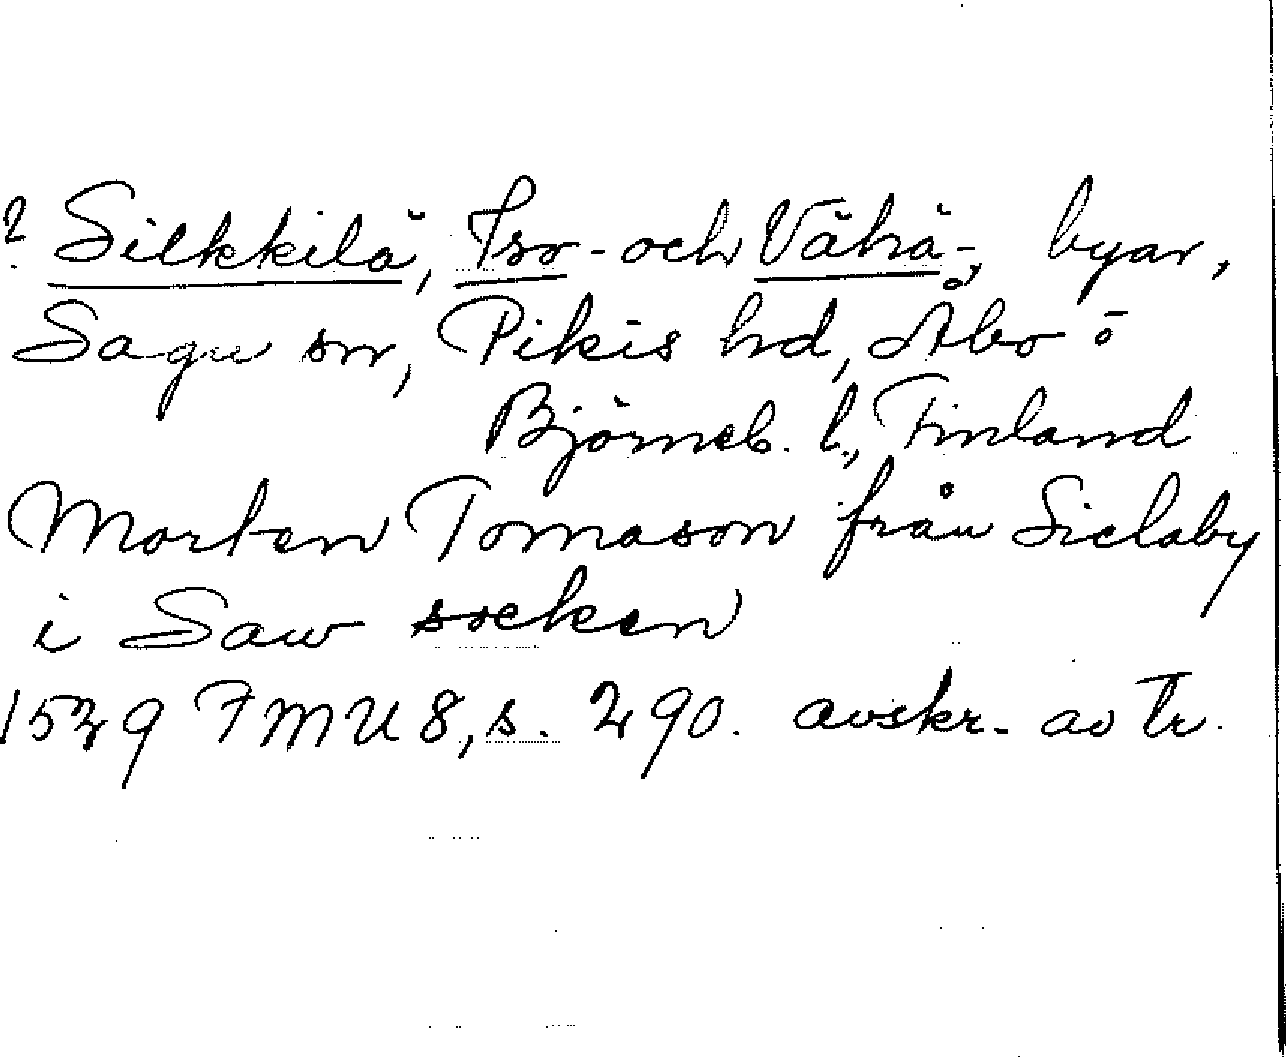 ? Silkkilä, Iso- och Vähä-, byar,
Sagu sn, Pikis hd, Åbo o
Björneb. l., Finland
Morten Tomason från Sielaby
i Saw socken
1529 FMU 8, s. 290. avskr. av tr.